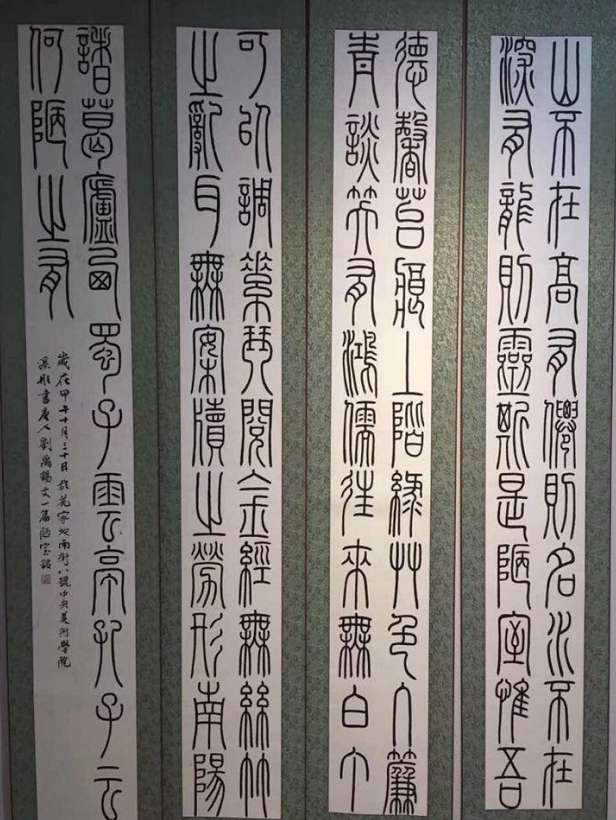 山不在高有僊則名水不在
深有龍則靈斯是陋室惟吾
德馨苔痕上階綠艸色入簾
青談笑有鴻儒往來無白丁
可以調素琴閱金經無絲竹
之亂耳無案牘之勞形南陽
諸葛廬西蜀子雲亭孔子云
何陋之有
歲在甲午十月三十日於花家地南街八號中央美術學院
書唐人劉禹錫文一篇陋室銘